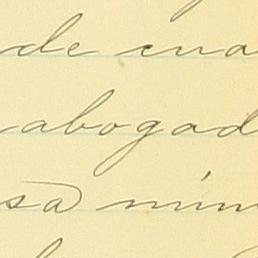 de cua
abogad
sa mim